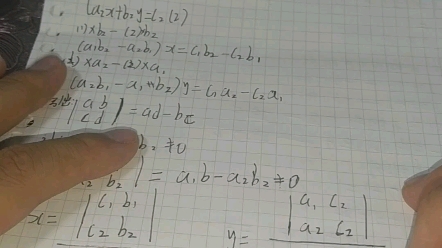 a₂x+b₂y=c₂ (2)
(1)×b₂-(2)×b₂
(a₁b₂-a₂b₁)x=c₁b₂-c₂b₁
×a₂-(2)×a₁
(a₂b₁-a₁b₂)y=c₁a₂-c₂x₁
|a b
c d|=ad-bc
b₂≠0
a₂ b₂|=a₁b-a₂b₂≠0
x=|c₁ b₁
c₂ b₂|
y=|a₁ c₂
a₂ c₂|